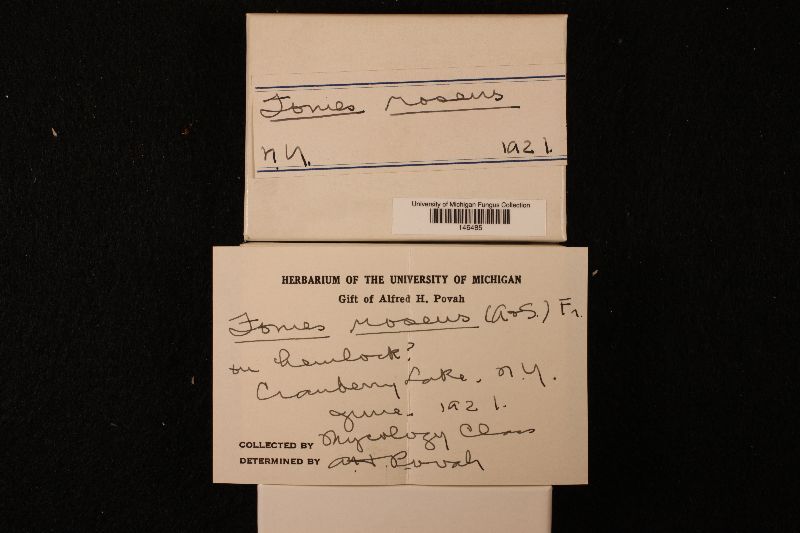 Fomes roseus
N.Y. 1921.
University of Michigan Fungus Collection
146485
HERBARIUM OF THE UNIVERSITY OF MICHIGAN
Gift of Alfred H. Povah
Fomes roseus (A+S.) Fr.
on hemlock?
Cranberry Lake. N.Y.
June. 1921.
COLLECTED BY Mycology Class
DETERMINED BY A.H. Povah